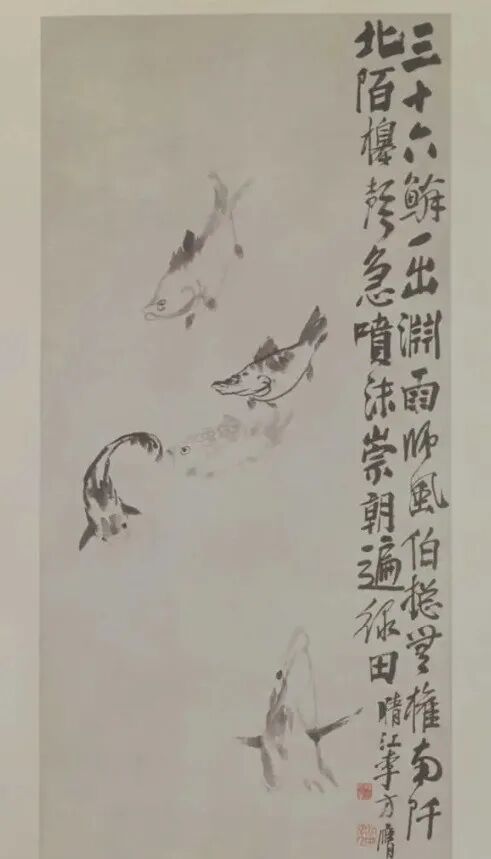 三十六鱗一出淵雨師風伯總無權南阡
北陌槔聲急噴沫崇朝遍綠田
晴江李方膺